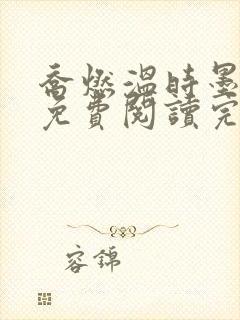 喬燃溫時墨
免費閱讀完
容錦